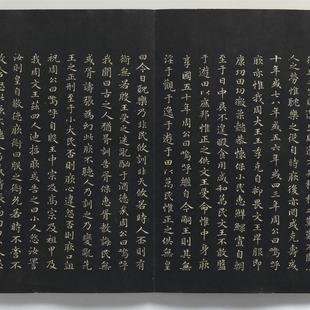 人之勞惟耽樂之從自時厥後亦罔或克壽或
十年或七八年或五六年或四三年周公曰嗚呼
厥亦惟我周太王王季克自抑畏文王卑服即
康功田功徽柔懿恭懷保小民惠鮮鰥寡自朝
至于日中昃不遑暇食用咸和萬民文王不敢盤
于遊田以庶邦惟正之供文王受命惟中身厥
享國五十年周公曰嗚呼繼自今嗣王則其無
淫于觀于逸于遊于田以萬民惟正之供無皇
曰今日耽樂乃非民攸訓非天攸若時人丕則有
愆無若殷王受之迷亂酗于酒德哉周公曰嗚呼
我聞曰古之人猶胥訓告胥保惠胥教誨民無
或胥譸張為幻此厥不聽人乃訓之乃變亂先
王之正刑至于小大民否則厥心違怨否則厥口詛
祝周公曰嗚呼自殷王中宗及高宗及祖甲及
我周文王茲四人迪哲厥或告之曰小人怨汝詈
汝則皇自敬德厥愆曰朕之愆允若時不啻不